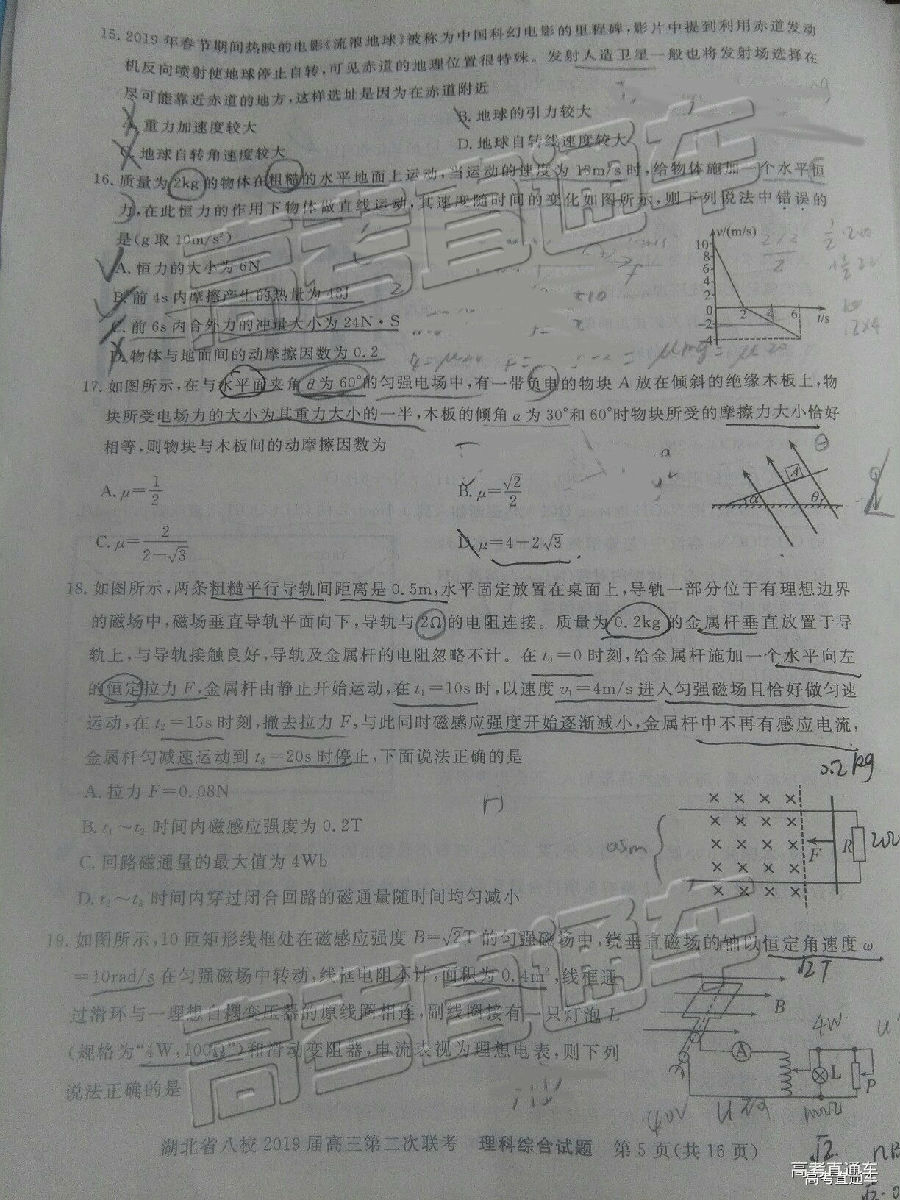 15. 2019年春节期间热映的电影《流浪地球》被称为中国科幻电影的里程碑,影片中提到利用赤道发动
机反向喷射使地球停止自转,可见赤道的地理位置很特殊。发射人造卫星一般也将发射场选择在
尽可能靠近赤道的地方,这样选址是因为在赤道附近
A. 重力加速度较大 B. 地球的引力较大
C. 地球自转角速度较大 D. 地球自转线速度较大
16. 质量为2kg的物体在粗糙的水平地面上运动,当运动的速度为10m/s时,给物体施加一个水平恒
力,在此恒力的作用下物体做直线运动,其速度随时间的变化如图所示,则下列说法中错误的
是(g取10m/s²)
A. 恒力的大小为6N
B. 前4s内摩擦产生的热量为48J
C. 前6s内合外力的冲量大小为24N·S
D. 物体与地面间的动摩擦因数为0.2
v/(m/s)
10
8
6
4
2
0 2 4 6 t/s
-2
-4
17. 如图所示,在与水平面夹角θ为60°的匀强电场中,有一带负电的物块A放在倾斜的绝缘木板上,物
块所受电场力的大小为其重力大小的一半,木板的倾角α为30°和60°时物块所受的摩擦力大小恰好
相等,则物块与木板间的动摩擦因数为
A. μ=1/2 B. μ=√2/2
C. μ=2/(2-√3) D. μ=4-2√3
A
α θ
18. 如图所示,两条粗糙平行导轨间距离是0.5m,水平固定放置在桌面上,导轨一部分位于有理想边界
的磁场中,磁场垂直导轨平面向下,导轨与2Ω的电阻连接。质量为0.2kg的金属杆垂直放置于导
轨上,与导轨接触良好,导轨及金属杆的电阻忽略不计。在t₀=0时刻,给金属杆施加一个水平向左
的恒定拉力F,金属杆由静止开始运动,在t₁=10s时,以速度v₁=4m/s进入匀强磁场且恰好做匀速
运动,在t₂=15s时刻,撤去拉力F,与此同时磁感应强度开始逐渐减小,金属杆中不再有感应电流,
金属杆匀减速运动到t₃=20s时停止,下面说法正确的是
0.2kg
A. 拉力F=0.08N
B. t₁~t₂时间内磁感应强度为0.2T
C. 回路磁通量的最大值为4Wb
D. t₂~t₃时间内穿过闭合回路的磁通量随时间均匀减小
0.5m
F R 2Ω
19. 如图所示,10匝矩形线框处在磁感应强度B=√2T的匀强磁场中,绕垂直磁场的轴以恒定角速度ω
=10rad/s在匀强磁场中转动,线框电阻不计,面积为0.4m²,线框通
过滑环与一理想自耦变压器的原线圈相连,副线圈接有一只灯泡L
(规格为“4W,100Ω”)和滑动变阻器,电流表视为理想电表,则下列
说法正确的是
√2T
B
4W
A L P
40V
√2
湖北省八校2019届高三第二次联考 理科综合试题 第5页(共16页)
高考直通车
高考直通车
高考直通车
高考直通车